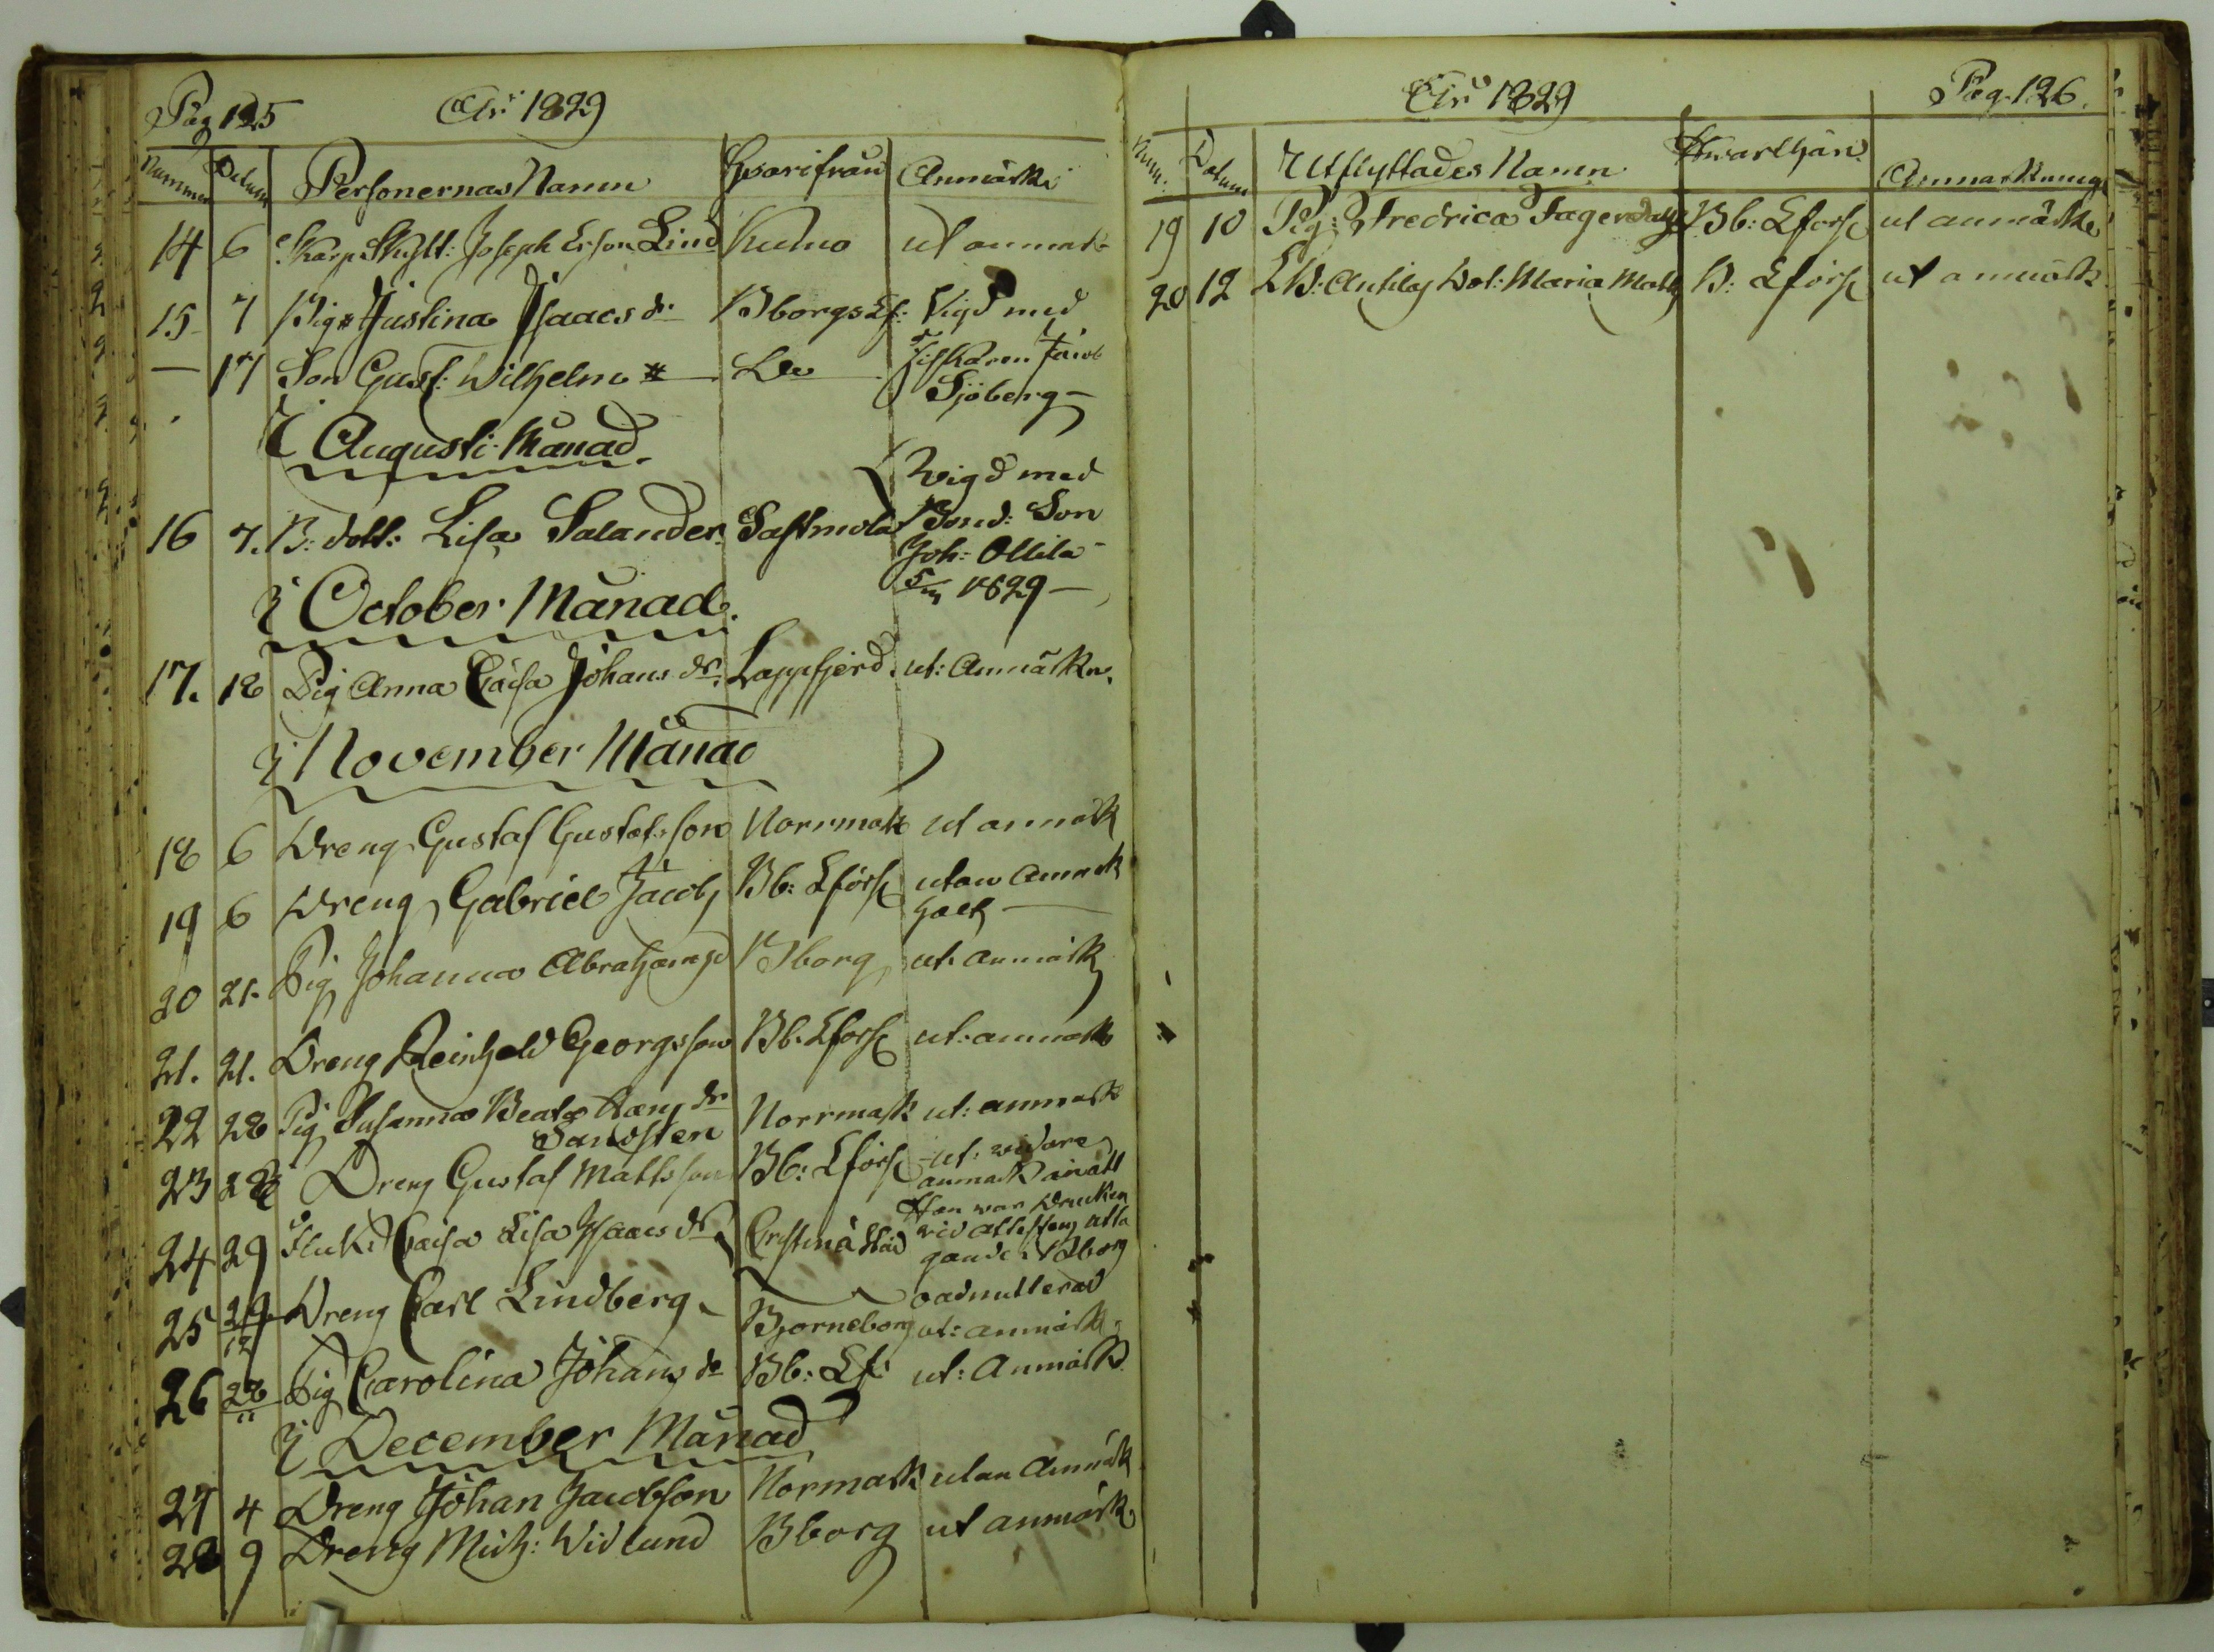 Pag 125 Åhr 1829
Nummer Datum Personernas Namn Hvarifrån Anmärkn
14 6 Skarp Skytt: Joseph Ersson Lind Kumo ut anmärk
15 7 Pig Justina Isaacs dr Bborgs Lf: Vigd med
— 17 Son Gust: Wilhelm Do Fiskaren Jacob
Sjöberg —
I Augusti Månad
Wigd med
16 7. B: dott: Lisa Salander Sastmola Bond: Son
Joh: Ollila
1829 —
I October Månad.
17. 18 Pig Anna Caisa Johans dr. Lappfjerd. ut: Anmärkn.
I November Månad
18 6 Dreng Gustaf Gustafsson Norrmark ut anmärk
19 6 Dreng Gabriel Jacobs Bb: Lförs utan Anmärk
20 21. Pig Johanna Abrahamsd Bborg ut anmärk
21. 21. Dreng Reinhold Georgsson Bb. Lförs ut: anmärk
22 28 Pig Susanna Beata dr Norrmark ut: anmärk
Sandsten
23 28 Dreng Gustaf Mattsson Bb: Lförs ut: vidare
anmärk än att
Han var Drucken
24 29 Caisa Lisa Isaacs dr Cristina Stad vid
Bborg
oadmitterad
25 29/12 Dreng Carl Lindberg Bjorneborg ut: anmärk
26 28/11 Pig Carolina Johans dr Bb: Lf: ut: Anmärk
I December Månad
27 4 Dreng Johan Jacobson Normark utan Anmärk
28 9 Dreng Mich: Widlund Bborg ut anmärk
Åhr 1829 Pag. 126.
Num: Datum Utflyttades Namn Hwarthän Anmärkning
19 10 Pig: Fredrica Fagerdahl Bb: Lförs ut anmärk
20 12 Dot: Maria Matts B: Lförs ut anmärk